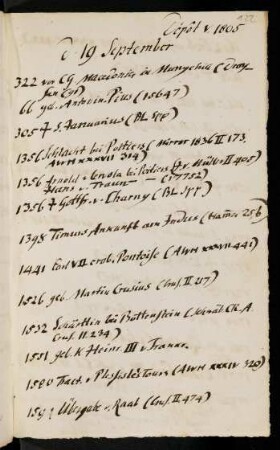 Dépôt v 1805
D. 19 September
322 vor Ch Macedoniens in Munychia (Droy-
sen
66 geb. Antonin. Pius (15647)
305 † S. Januarius (BL
1356 Schlacht bei Poitiers (Mirror 1836 II 173,
AWH XXXVII 314)
1356 Arnold bei Poitiers (Joh. Müller II 405)
Hans v Traun — (17752)
1356 † Gottfr. v Charny (BL
1398 Timurs Ankunft am Indus (Hamer 256)
1441 Carl VII erob. Pontoise (AWH XXXVII 441)
1526 geb. Martin Crusius (Crus. II 217)
1532 Schärtlin bei Pottenstein
Crus. II 234)
1551 geb. K Heinr. III v Frankr.
1580 Tract. v Plessis les Tours (AWH XXXIV 320)
Übergabe v Raab (Crus. II 474)